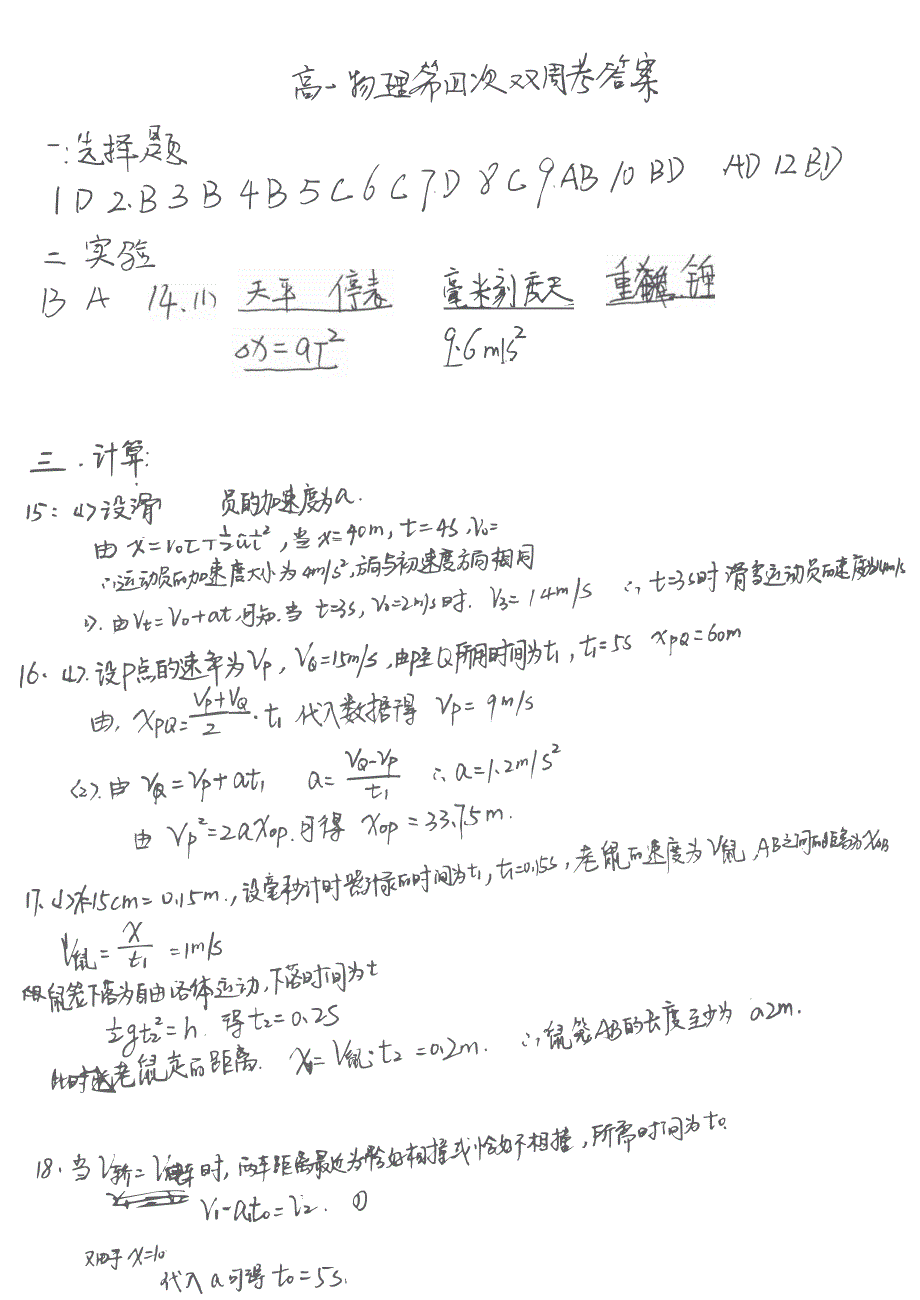 高一物理第四次双周考答案
一:选择题
1D 2.B 3B 4B 5C 6C 7.D 8C 9.AB 10 BD AD 12 BD
二 实验
13 A 14.(1) 天平 停表 毫米刻度尺 重锤
△x=aT² 9.6m/s²
三.计算:
15:(1)设滑 员的加速度为a.
由 x=v₀t+½at²,当x=40m,t=4s,v₀=
∴运动员的加速度大小为4m/s²,方向与初速度方向相同
2).由Vt=V₀+at,可知.当 t=3s,V₀=2m/s时. V₃=14m/s ∴t=3s时滑雪运动员的速度为14m/s
16.(1).设P点的速率为Vp,VQ=15m/s,由P至Q所用时间为t₁,t₁=5s xPQ=60m
由, xPQ=(Vp+VQ)/2·t₁ 代入数据得 Vp=9m/s
(2).由 VQ=Vp+at₁ a=(VQ-Vp)/t₁ ∴a=1.2m/s²
由 Vp²=2axop.可得 xop=33.75m.
17.(1)x=15cm=0.15m.,设毫秒计时器记录的时间为t₁,t₁=0.15s,老鼠的速度为V鼠,AB之间的距离为xAB
V鼠=x/t₁=1m/s
鼠笼下落为自由落体运动,下落时间为t
½gt₂²=h. 得t₂=0.2s
此时老鼠走的距离. x=V鼠·t₂=0.2m. ∴鼠笼AB的长度至少为 0.2m.
18.当V轿=V 车时,两车距离最近为恰好相撞或恰好不相撞,所需时间为t₀.
V₁-a₁t₀=V₂. ①
又由于x=10
代入a可得t₀=5s.